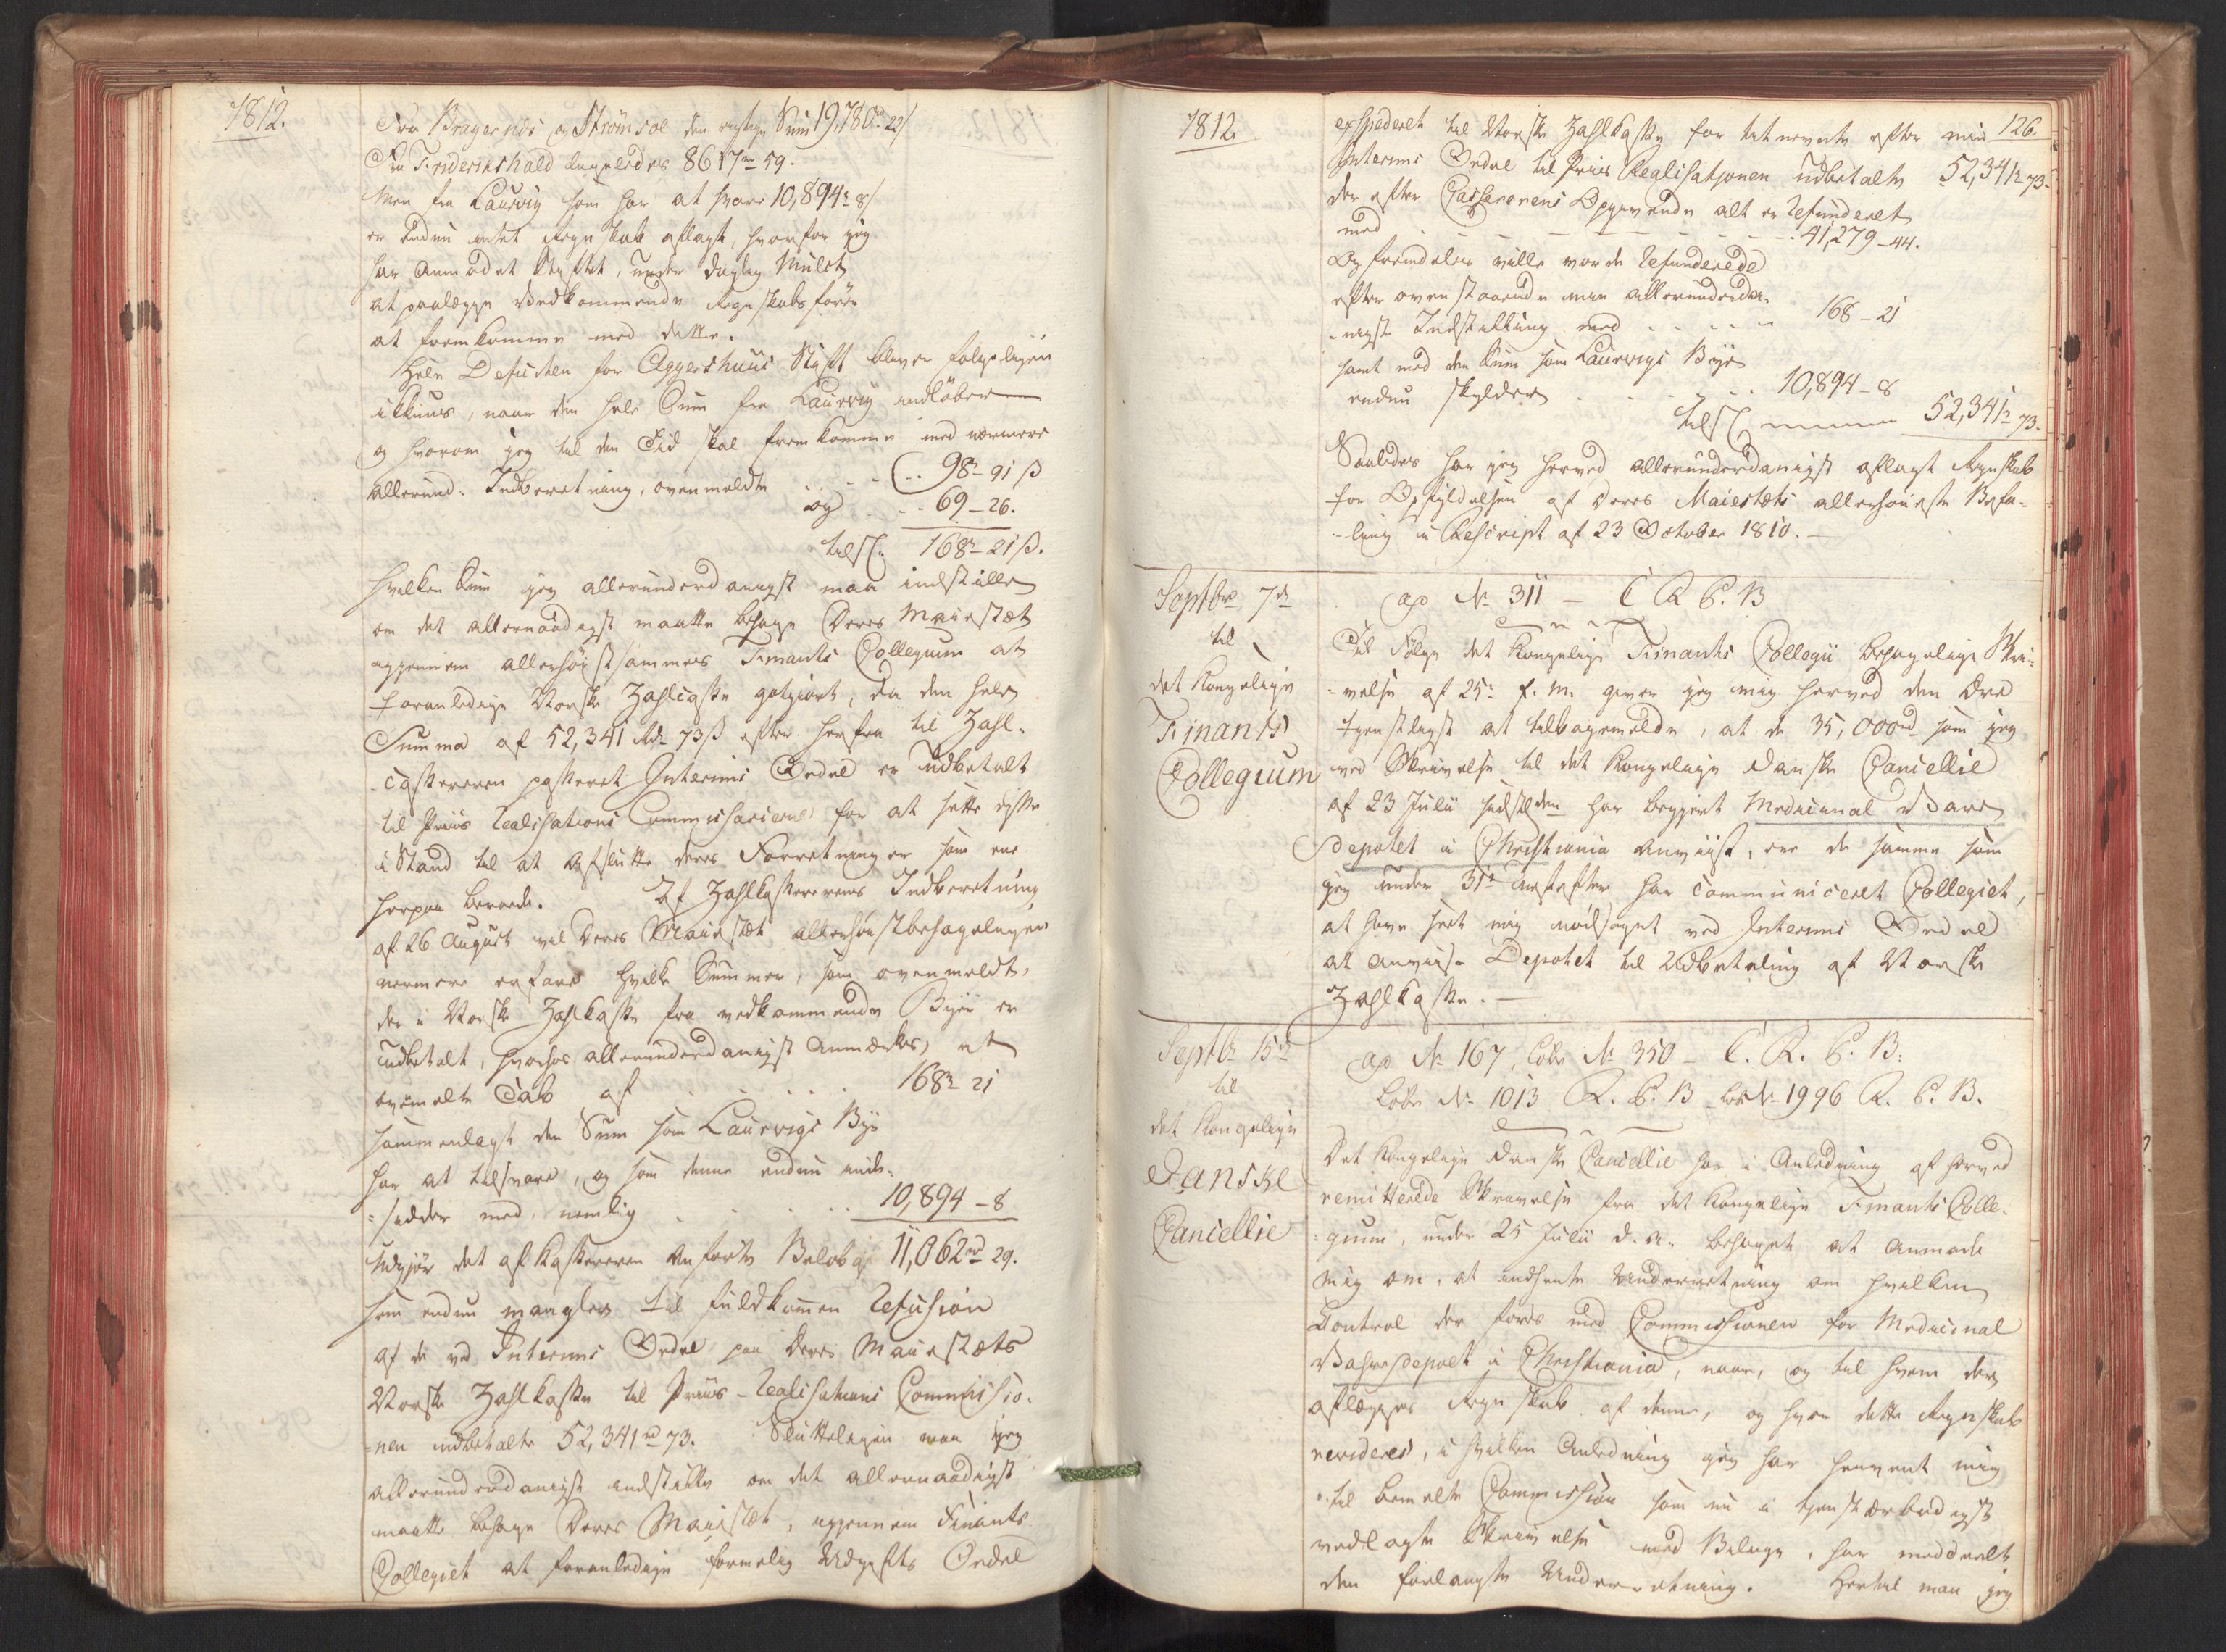 1812.
Fra Bragernæs og Strömsoe den rigtige Sum 19,780 rd 22/
Fra Friderikshald ligeledes 8617 rd 59.
Men fra Laurvig som har at svare 10,894 r 8/
er endnu intet Regnskab aflagt, hvorfor jeg
har anmodet Stiftet, under daglig Mulct
at paalægge Vedkommende Regnskabsförer
at fremkomme med dette.
Hele Deficiten for Aggershuus Stift bliver fölgeligen
ikkuns, naar den hele Sum fra Laurvig indlöber
og hvorom jeg til den Tid skal fremkomme med nærmere
allerund: Indberetning, ovenmeldte .. 98 r 91 ß
og .. 69 - 26.
tils: 168 r 21 ß.
Hvilken Sum jeg allerunderdanigst maa indstille
om det allernaadigst maatte behage Deres Maiestæt
igjennem allerhöistsammes Finants Collegium at
foranledige Norske Zahlcasse godgiort, da den hele
Summa af 52,341 Rdr 73 ß efter herfra til Zahl-
casereren passeret Interims Ordre er udbetalt
til Priis Realisations Commissarierne for at sætte disse
i Stand til at afslutte deres Forretninger som ene
herpaa beroede. Af Zahlkassererens Indberetning
af 26 August vil Deres Maiestæt allerhöistbehageligen
nærmere erfare hvilke Summer, som ovenmeldt,
der i Norske Zahlkasse fra vedkommende Byer er
indbetalt, hvorhos allerunderdanigst anmærkes, at
ovenmelte Tab af . . . . 168 r 21
sammenlagt den Sum som Laurvigs Bye
har at tilsvare, og som denne endnu inde-
sidder med, nemlig . . . . . 10,894 - 8
udgjör det af Kassereren anförte Belöb af 11,062 rd 29.
som endnu mangler til fuldkommen Refusion
af de ved Interims Ordre paa Deres Maiestæts
Norske Zahlkasse til Priis-Realisations Commissio-
nen udbetalte 52,341 rd 73. Sluttelig maa jeg
allerunderdanigst indstille om det allernaadigst
maatte behage Deres Maiestæt, igjennem Finants
Collegiet at foranledige formelig Udgifts Ordre
1812.
126.
exspederet til Norske Zahlkasse for det nævnte efter min
Interims Ordre til Priis Realisationen udbetalte 52,341 r 73.
der efter Cassererens Opgivende alt er refunderet
med - - - - - - 41,279 - 44.
og fremdeles ville worde refunderede
efter ovenstaaende min allerunderda-
nigste Indstilling med . . . . . 168 - 21
samt med den Sum som Laurvigs Bye
endnu skylder . . . . . 10,894 - 8
tils: 52,341 r 73.
Saaledes har jeg herved allerunderdanigst aflagt Regnskab
for Opfyldelsen af Deres Maiestæts allerhöieste Befa-
ling i Rescript af 23 October 1810. -
Septbr 7de
til
det Kongelige
Finants
Collegium
ap No 311 - C R C. B
Til Fölge det Kongelige Finants Collegii behagelige Skri-
velse af 25: f. M. giver jeg mig herved den Ære
tjenstligst at tilbagemelde, at de 35,000 rd som jeg
ved Skrivelse til det Kongelige Danske Cancellie
af 23 Julii sidstleden har begjert Medicinal Vare
Depotet i Christiania anviist, ere de samme som
jeg under 31te næstefter har communiceret Collegiet,
at have seet mig nödsaget ved Interims Ordre
at anviise Depotet til Udbetaling af Norske
Zahlkasse. -
Septbr 15de
til
det Kongelige
Danske
Cancellie
ap No 167, Löbe No 350 - C. R. C. B:
Löbe No 1013 R. C. B Löb No 1996 R. C. B.
Det Kongelige Danske Cancellie har i Anledning af herved
remitterede Skrivelse fra det Kongelige Finants Colle-
gium, under 25 Julii d. A. behaget at anmode
mig om, at indhente Underretning om hvilken
Control der föres med Commissionen for Medicinal
Vahredepoet i Christiania, naar, og til hvem der
aflægges Regnskab af denne, og hvor dette Regnskab
revideres, i hvilken Anledning jeg har henvent mig
til bemelte Commission som nu i tjenstærbødigst
vedlagte Skrivelse med Bilage, har meddeelt
den forlangte Underretning. Hertil maa jeg